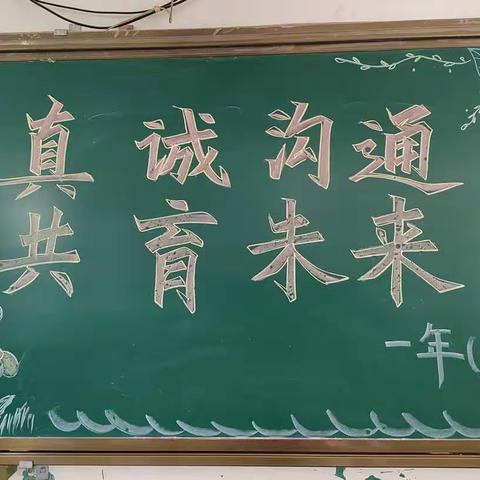 真诚沟通
共育未来
一年(